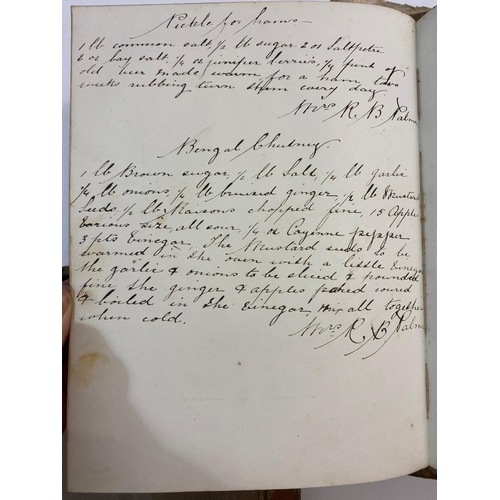 Pickle for hams
1 lb common salt, ½ lb sugar 2 oz Saltpetre
2 oz bay salt, ½ oz juniper berries, ½ pint of
old beer made warm, for a ham two
weeks rubbing turn them every day.
Mrs R. B. Palm
Bengal Chutney.
1 lb Brown sugar, ½ lb Salt, ¼ lb garlic
¼ lb onions, ½ lb bruised ginger, ½ lb Mustard
Seeds, ½ lb Raisons chopped fine, 15 Apple
size, all sour, ¼ oz Cayenne pepper
3 pts Vinegar, The Mustard seeds to be
warmed in the oven with a little Vinega
the garlic & onions to be sliced & pounded
fine the ginger & apples cored
& boiled in the Vinegar, mix all togethe
when cold.
Mrs R. B. Palm